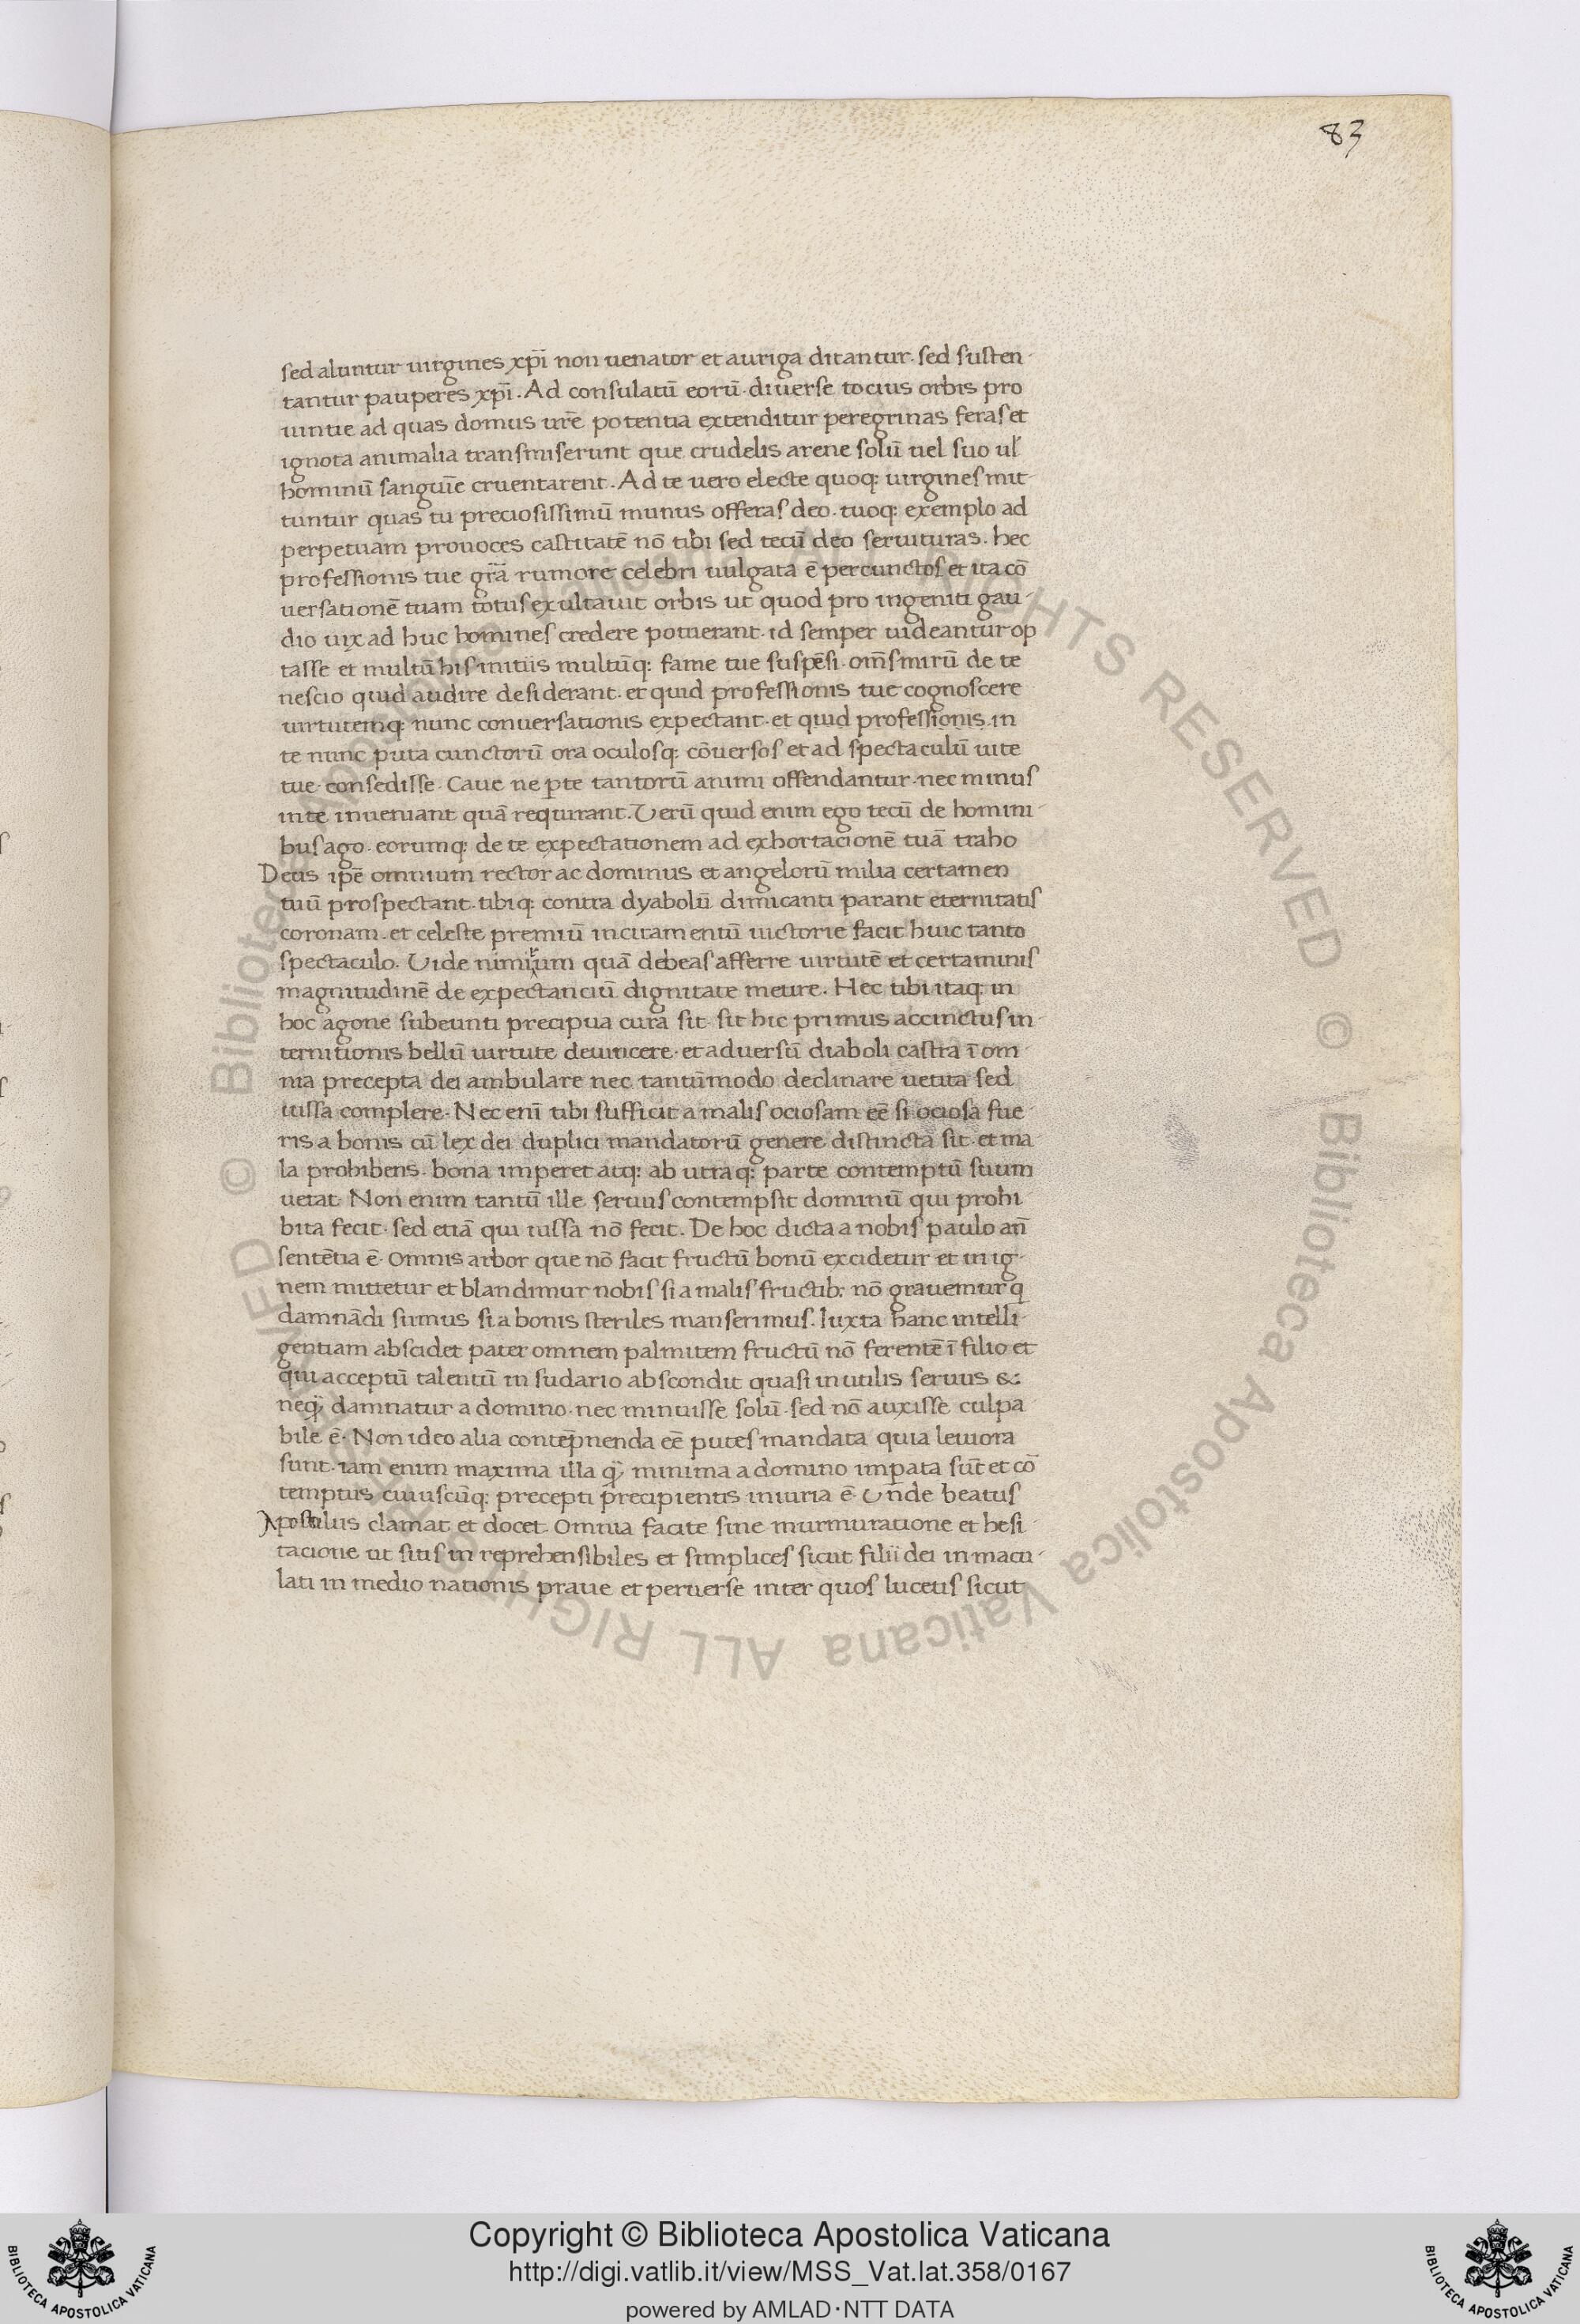 83
sed aluntur uirgines xp̄i non uenator et auriga ditantur. sed susten-
tantur pauperes xp̄i. Ad consulatū eorū. diuerse tocius orbis pro
uintie ad quas domus ur̄e potentia extenditur peregrinas feras et
ignota animalia transmiserunt que crudelis arene solū uel suo ul̕
hominū sanguīe cruentarent. Ad te uero electe quoq: uirgines mit-
tuntur quas tu preciosissimū munus offeras deo. tuoq: exemplo ad
perpetuam prouoces castitatē nō tibi sed tecū deo seruituras. hec
professionis tue gr̄a rumore celebri uulgata ē per cunctos et ita cō
uersationē tuam totus exultauit orbis ut quod pro ingeniti gau-
dio uix ad huc homines credere potuerant. id semper uideantur op
tasse et multū his initiis multūq: fame tue suspēsi. om̄s mirū de te
nescio quid audire desiderant. et quid professionis tue cognoscere
uirtutemq: nunc conuersationis expectant. et quid professionis. in
te nunc puta cunctorū ora oculosq: cōuersos et ad spectaculū uite
tue. consedisse. Caue ne p̱te tantorū animi offendantur. nec minus
in te inueniant quā requirant. Verū quid enim ego tecū de homini-
bus ago. eorumq: de te expectationem ad exhortacionē tuā traho
Deus ip̄e omnium rector ac dominus et angelorū milia certamen
tuū prospectant. tibiq: contra dyabolū dimicanti parant eternitatis
coronam. et celeste premiū incitamentū uictorie facit huic tanto
spectaculo. Uide nimium quā debeas afferre uirtutē et certaminis
magnitudinē de expectanciū dignitate metire. Hec tibi itaq: in
hoc agone subeunti precipua cura sit. sit hic primus accinctus in-
ternitionis bellū uirtute deuincere. et aduersū diaboli castra ī om-
nia precepta dei ambulare nec tantūmodo declinare uetita sed
iussa complere. Nec enī tibi sufficit a malis ociosam eē si ociosa fue-
ris a bonis cū lex dei duplici mandatorū genere distincta sit. et ma-
la prohibens. bona imperet atq: ab utraq: parte contemptū suum
uetat. Non enim tantū ille seruus contempsit dominū qui prohi
bita fecit. sed etiā qui iussa nō fecit. De hoc dicta a nobis paulo an̄
sentētia ē. Omnis arbor que nō facit fructū bonū excidetur et in ig-
nem mittetur et blandimur nobis si a malis fructib: nō grauemur q
damnādi sumus si a bonis steriles manserimus. Iuxta hanc intelli-
gentiam abscidet pater omnem palmitem fructū nō ferentē ī filio et
qui acceptū talentū in sudario abscondit quasi inutilis seruus &
neq̄ damnatur a domino. nec minuisse solū. sed nō auxisse culpa
bile ē. Non ideo alia contēpnenda eē putes mandata quia leuiora
sunt. iam enim maxima illa q̄ minima a domino imp̱ata sūt et cō
temptus cuiuscūq: precepti precipientis iniuria ē. Un̄de beatus
Apostolus clamat et docet. Omnia facite sine murmuratione et hesi-
tacione ut sitis in reprehensibiles et simplices sicut filii dei inmacu-
lati in medio nationis praue et peruerse inter quos lucetis sicut
© Biblioteca Apostolica Vaticana ALL RIGHTS RESERVED
© Biblioteca Apostolica Vaticana ALL RIGHTS RESERVED
Copyright © Biblioteca Apostolica Vaticana
http://digi.vatlib.it/view/MSS_Vat.lat.358/0167
powered by AMLAD·NTT DATA
BIBLIOTECA APOSTOLICA VATICANA
BIBLIOTECA APOSTOLICA VATICANA